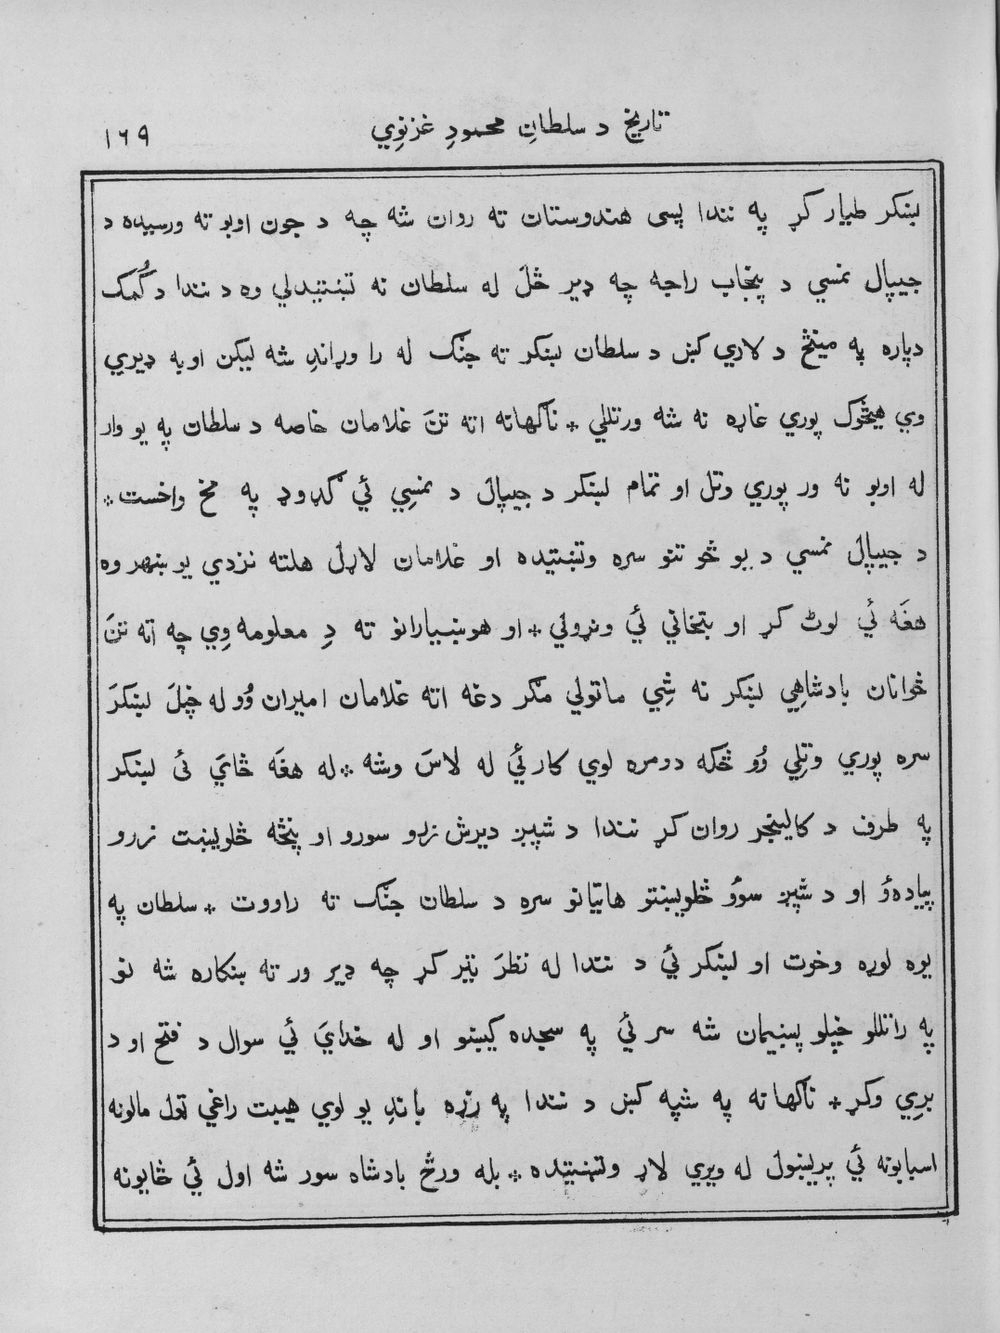 تاریخ د سلطانِ محمودِ غزنوِي
١٦٩
لښکر طیار کړ په نندا پسی هندوستان ته روان شه چه د جون اوبو ته ورسیده د
جیپال نمسي د پنجاب راجه چه ډیر ځلَ له سلطان نه تښتیدلي وه د نندا د کُمک
دپاره په مینځ د لاري کښ د سلطان لښکر ته جنګ له را وړاندِ شه لیکن اوبه ډیري
وې هیڅوک پوري غاړه نه شه ورتللي * ناګهانه اته تنَ غلامان خاصه د سلطان په یو وار
له اوبو نه ور پوري وتل او تمام لښکر د جیپال د نمسِي ئي ګډ وډ په مخ واخست *
د جیپال نمسي د یو څو تنو سره وتښتیده او غلامان لاړل هلته نزدي یو ښهر وه
هغَه ئي لوټ کړ او بتخاني ئي ونړولي * او هوښیارانو ته دِ معلومه وِي چه اته تنَ
ځوانان بادشاهِي لښکر نه شِي ماتولي مګر دغه اته غلامان امیران وُو له خپلَ لښکرَ
سره پوري وتِلي وُو ځکه دومره لوي کار ئي له لاسَ وشه * له هغَه ځايَ ئ لښکر
په طرف د کالینجر روان کړ نندا د شپږ دیرش زرو سورو او پنځه څلویښت زرو
پیادهؤ او د شپږ سوؤ څلویښتو هاتیانو سره د سلطان جنګ ته راووت * سلطان په
یوه لوړه وخوت او لښکر ئي د نندا له نظرَ تیر کړ چه ډیر ور ته ښکاره شه نو
په راتللو خپلو پښیمان شه سر ئي په سجده کیښو او له خدايَ ئي سوال د فتح او د
برِي وکړ * ناګهانه په شپه کښ د نندا په زړه باندِ یو لوي هیبت راغي ټول مالونه
اسبابونه ئي پریښول له ویري لاړ وتښتیده * بله ورځ بادشاه سور شه اول ئي ځایونه